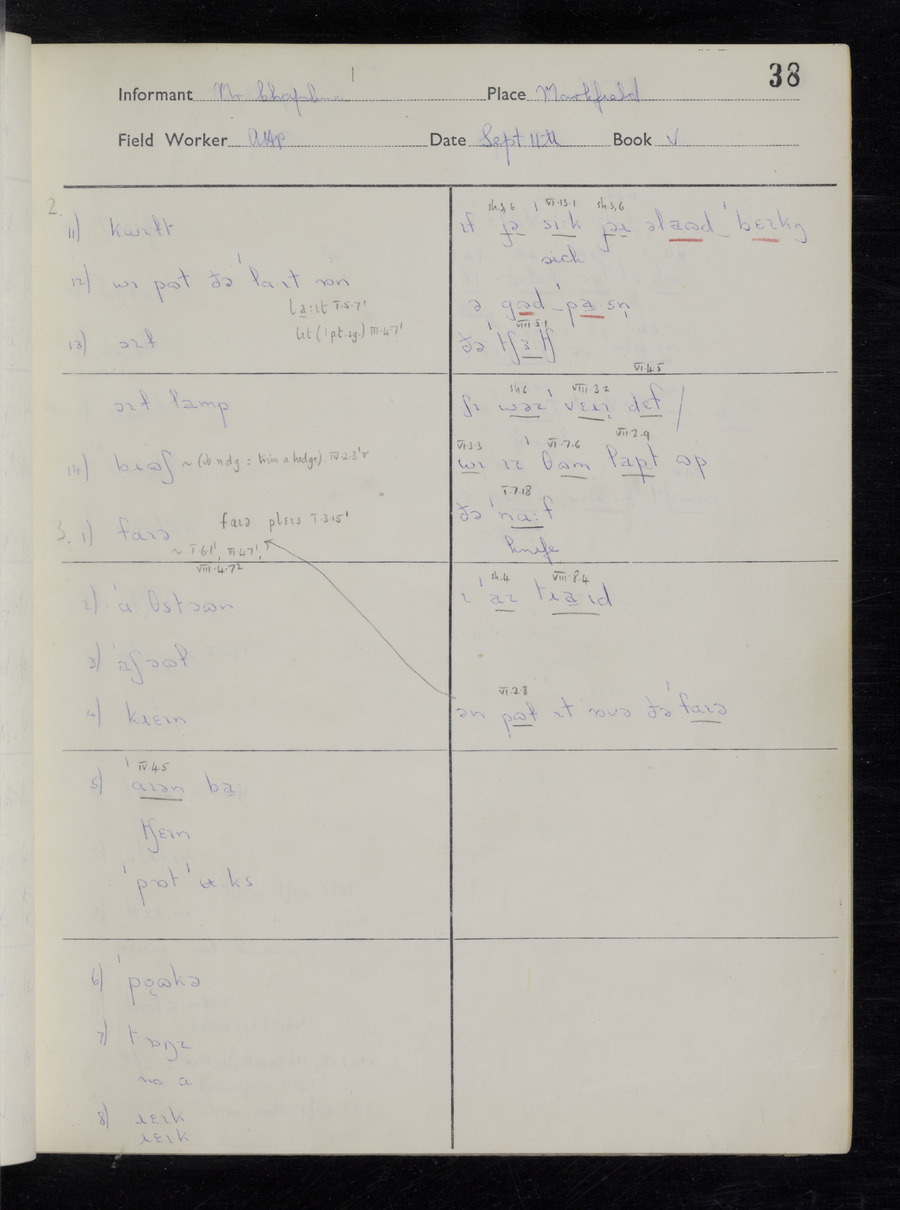 38
Informant Mr Chaplin Place Markfield
Field Worker Date Sept 11th Book V
2.
11) kwɪlt
12) wɪ pɷt ðə ˈlaɪt ɒn
la:ɪt V.5.7ˡ
lɪt (1 pt. sg.) III.4.7ˡ
13) ɔɪl
ɔɪl lamp
14) bɹɷʃ ~ (vb. n dg = trim a hedge) IV.2.3ˡr
3. 1) faɪə faɪə pleɪs V.3.15ˡ
VIII.4.7²
2) ˈa θstɔɷn
3) ˈaʃɔɷl
4) kɹɛɪn
IV.4.5
5) ˈaɪən ba
tʃɛɪn
ˈpɒt ˈɷ·ks
6) ˈpɔ̞ɷkə
7) tɒŋz
no a
8) ɹɛɪk
ɹɛɪk
sh.3,6 VI.13.1 sh.3,6
ɪf jə ˈsi:k jəɪ əlaɷd ˈbɛɪkŋ
sick
ə gɷd ˈpa·sn̩
VIII.5.1
ðə ˈtʃɜ:tʃ
VI.4.5
sh.6 VIII.3.2
ʃɪ wəz ˈvɛɹɪ dɛf /
VI.3.3 VI.7.6 VII.2.9
wɪ ɪz θɷm lapt ɷp
V.7.18
ðə ˈna:f
knife
sh.4 VIII.8.4
ɪ ˈaz tɹaɪd
VI.2.8
ən pɷt ɪt ɒvə ðə ˈfaɪə